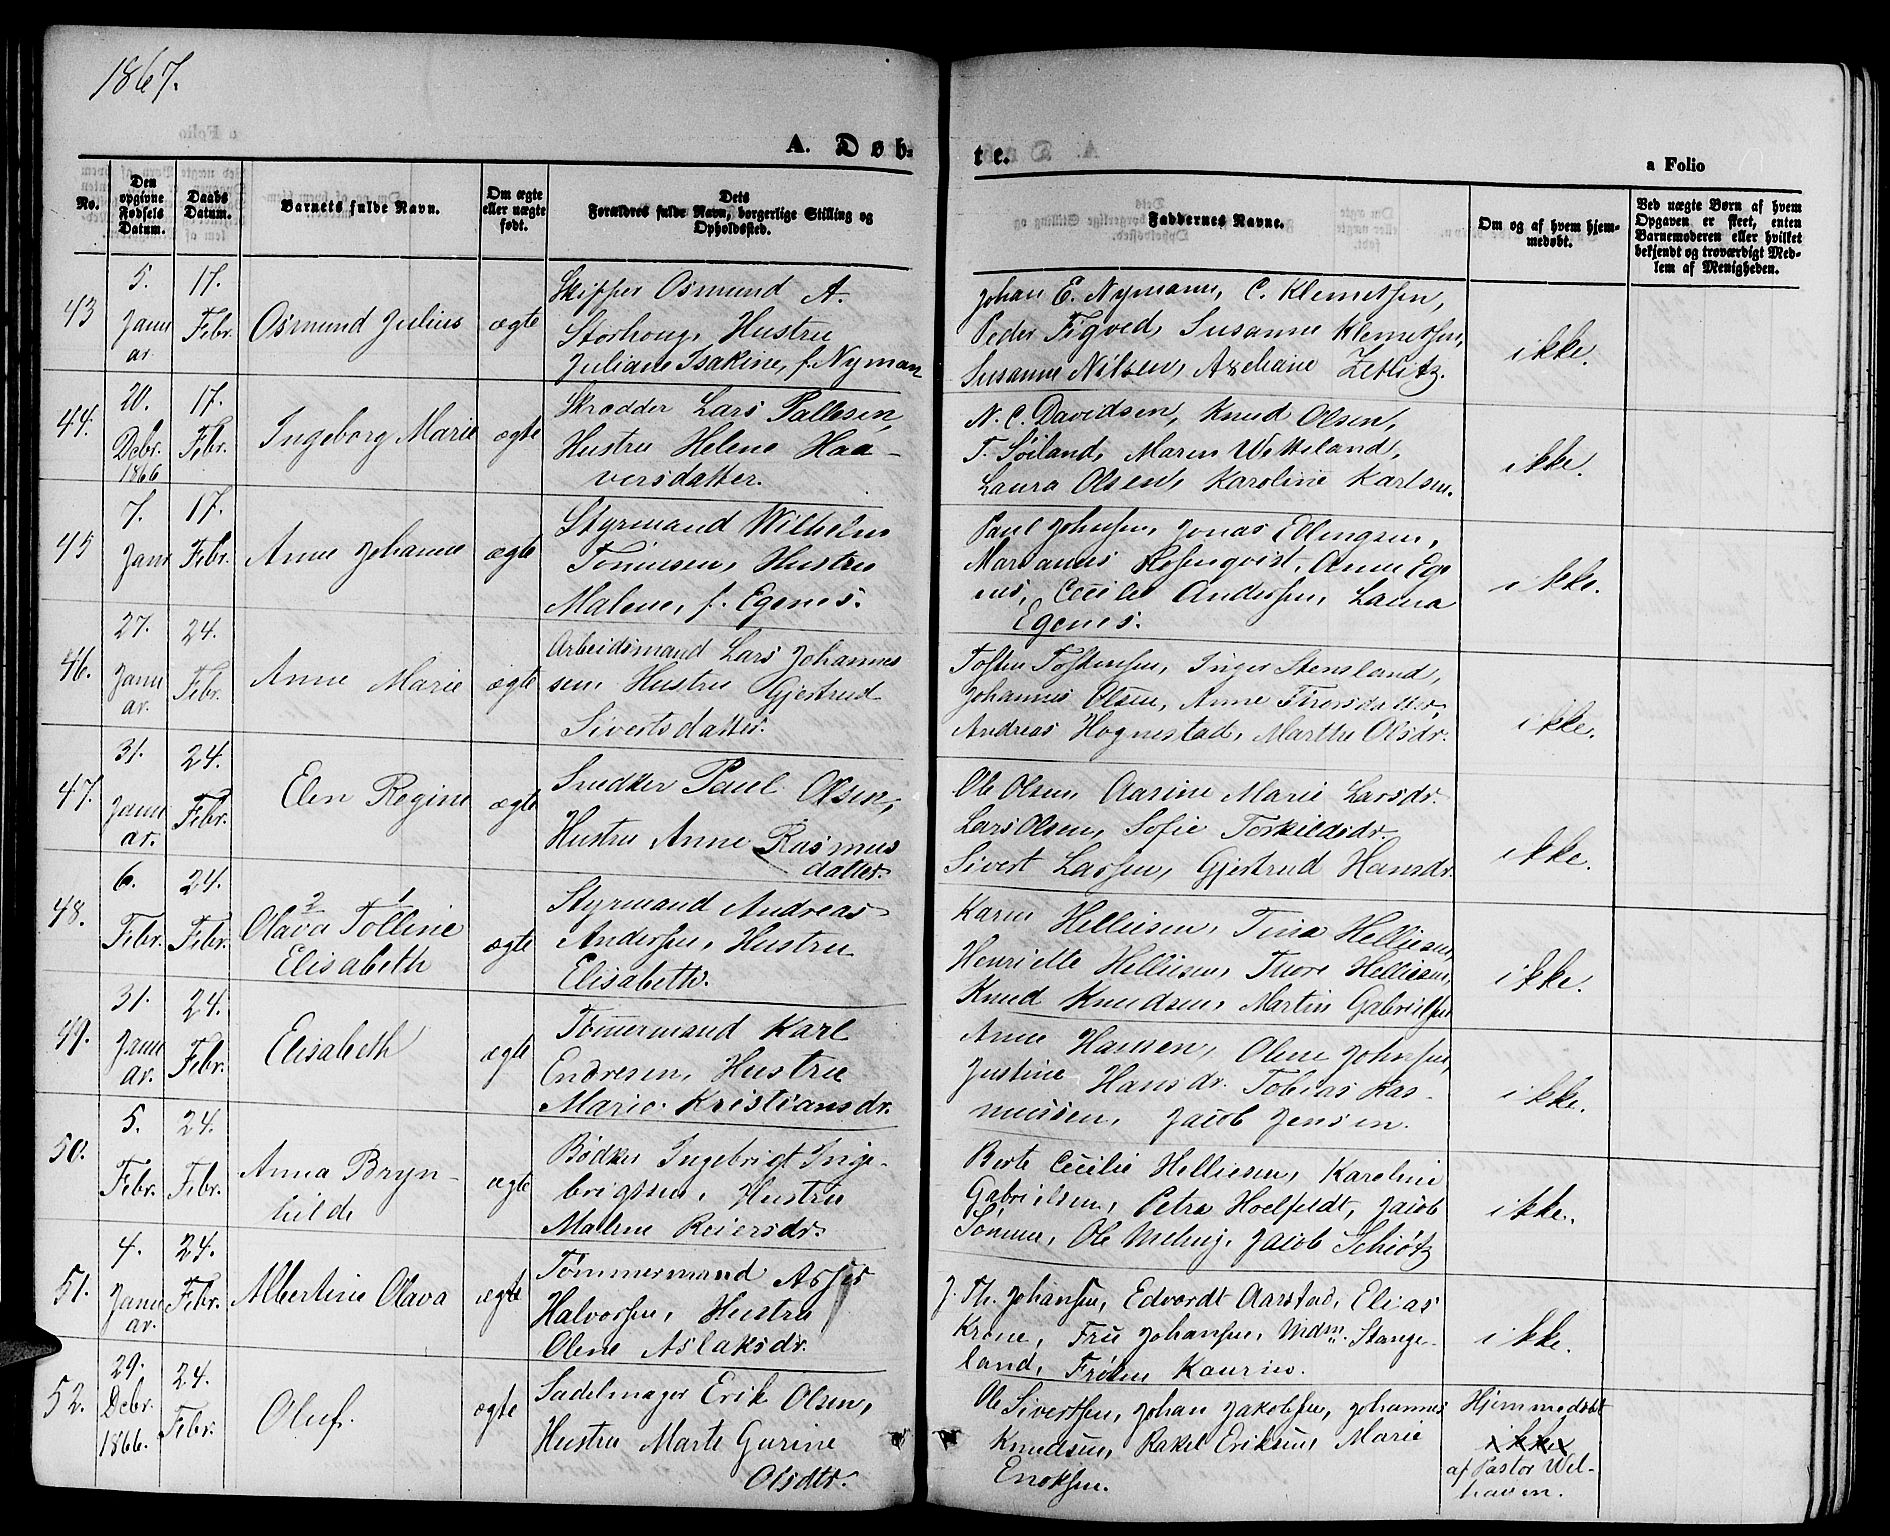 1867.
A. Døb-
te.
a Folio
No.
Den opgivne Fødsels Datum.
Daabs Datum.
Barnets fulde Navn.
Om ægte eller uægte født.
Dets Forældres fulde Navn, borgerlige Stilling og Opholdssted.
Faddernes Navne.
Om og af hvem hjemmedøbt.
Ved uægte Børn af hvem Opgaven er skeet, enten Barnemoderen eller hvilket bekjendt og troværdigt Medlem af Menigheden.
43
5. Januar.
17. Febr.
Osmund Julius
ægte
Skipper Osmund A.
Storhoug, Hustru
Juliane Isakine, f. Nyman
Johan E. Nymann, C. Klemetsen,
Peder Figved, Susanne Klemetsen,
Susanne Nilsen, Axeliane Zetlitz.
ikke.
44.
20. Debr. 1866
17. Febr.
Ingeborg Marie
ægte
Skrædder Lars Pallesen,
Hustru Helene Haa-
versdatter.
N. C. Davidsen, Knud Olsen,
T. Soiland, Maren Wetteland,
Laura Olsen, Karoline Karlsen.
ikke.
45
7. Janu
17. Febr.
Anne Johanne
ægte
Styrmand Wilhelm
Tönnesen, Hustru
Malene, f. Egenes.
Paul Johnsen, Jonas Edlingsen,
Marianne Rosenqvist, Anne Ege-
nes, Cecilie Andersen, Laura
Egenes.
ikke.
46.
27. Januar.
24. Febr.
Anne Marie
ægte
Arbeidsmand Lars Johannes
sen Hustru Gjertrud
Sivertsdatter.
Tosten Tostensen, Inger Stensland,
Johannes Olsen, Anne Torersdatter,
Andreas Hognestad, Marthe Olsdr.
ikke.
47.
31. Januar.
24. Febr.
Elen Regine
ægte
Snedker Paul Olsen,
Hustru Anne Rasmus
datter.
Ole Olsen, Aarine Marie Larsdr.
Lars Olsen, Sofie Torkildsdr.
Sivert Larsen, Gjertrud Hansdr.
ikke.
48.
6. Febr.
24. Febr.
2 1
Olava Tolline
Elisabeth
ægte
Styrmand Andreas
Andersen, Hustru
Elisabeth.
Karen Helliesen, Tina Helliesen,
Henriette Helliesen, Thore Helliesen,
Knud Knudsen, Martin Gabrielsen
ikke.
49.
31. Januar.
24. Febr.
Elisabeth
ægte
Tömmermand Karl
Endresen, Hustru
Marie Kristiansdr.
Anne Hansen, Olene Johnsen,
Justine Hansdr. Tobias Ras-
mussen, Jacob Jensen.
ikke.
50.
5. Febr.
24. Febr.
Anna Bryn-
hilde
ægte
Bødker Ingebrigt Inge-
brigtsen, Hustru
Malene Reiersdr.
Berte Cecilie Helliesen, Karoline
Gabrielsen, Petra Hoelfeldt, Jacob
Sömme, Ole Meling, Jacob Schiøtz
ikke.
51.
4. Januar.
24. Febr.
Albertine Olava
ægte
Tömmermand Asser
Halvorsen, Hustru
Olene Aslaksdr.
J. Th. Johansen, Edvardt Aarstad, Elias
Krone, Fru Johansen, Mdm. Stange-
land, Frøken Kaurin.
ikke.
52.
29. Debr. 1866.
24. Febr.
Oluf.
ægte
Sadelmager Erik Olsen,
Hustru Marte Gurine
Olsdtr.
Ole Sivertsen, Johan Jakobsen, Johannes
Knudsen, Rakel Eriksen, Marie
Enoksen.
Hjemmedøbt
ikke
af Pastor Wel-
haven.